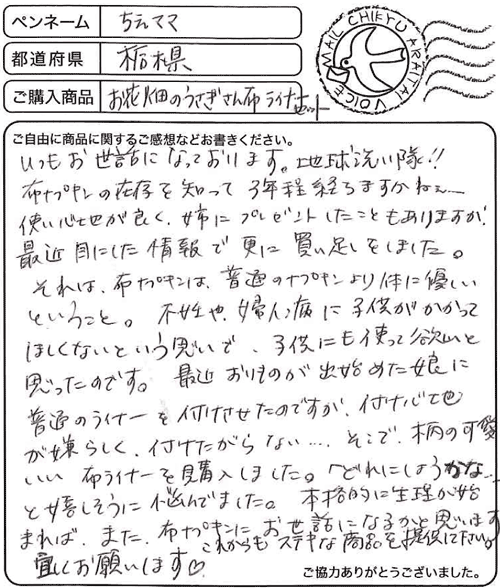 ペンネーム ちえママ
都道府県 栃木県
ご購入商品 お花畑のうさぎさん布ライナーセット
MAIL CHIKYU ARAITAI VOICE
ご自由に商品に関するご感想などお書きください。
いつもお世話になっております。地球洗い隊!!
布ナプキンの存在を知って3年程経ちますかねぇ〜
使い心地が良く、姉にプレゼントしたこともありますが、
最近目にした情報で更に買い足しをしました。
それは、布ナプキンは、普通のナプキンより体に優しい
ということ。不妊や、婦人病に子供がかかって
ほしくないという思いで、子供にも使って欲しいと
思ったのです。最近おりものが出始めた娘に
普通のライナーを付けさせたのですが、付け心地
が嫌らしく、付けたがらない…。そこで、柄の可愛
いい布ライナーを購入しました。「どれにしようかな…
と嬉しそうに悩んでました。本格的に生理が始
まれば、また、布ナプキンにお世話になるかと思います
これからもステキな商品を提供して下さい。
宜しくお願いします♡
ご協力ありがとうございました。